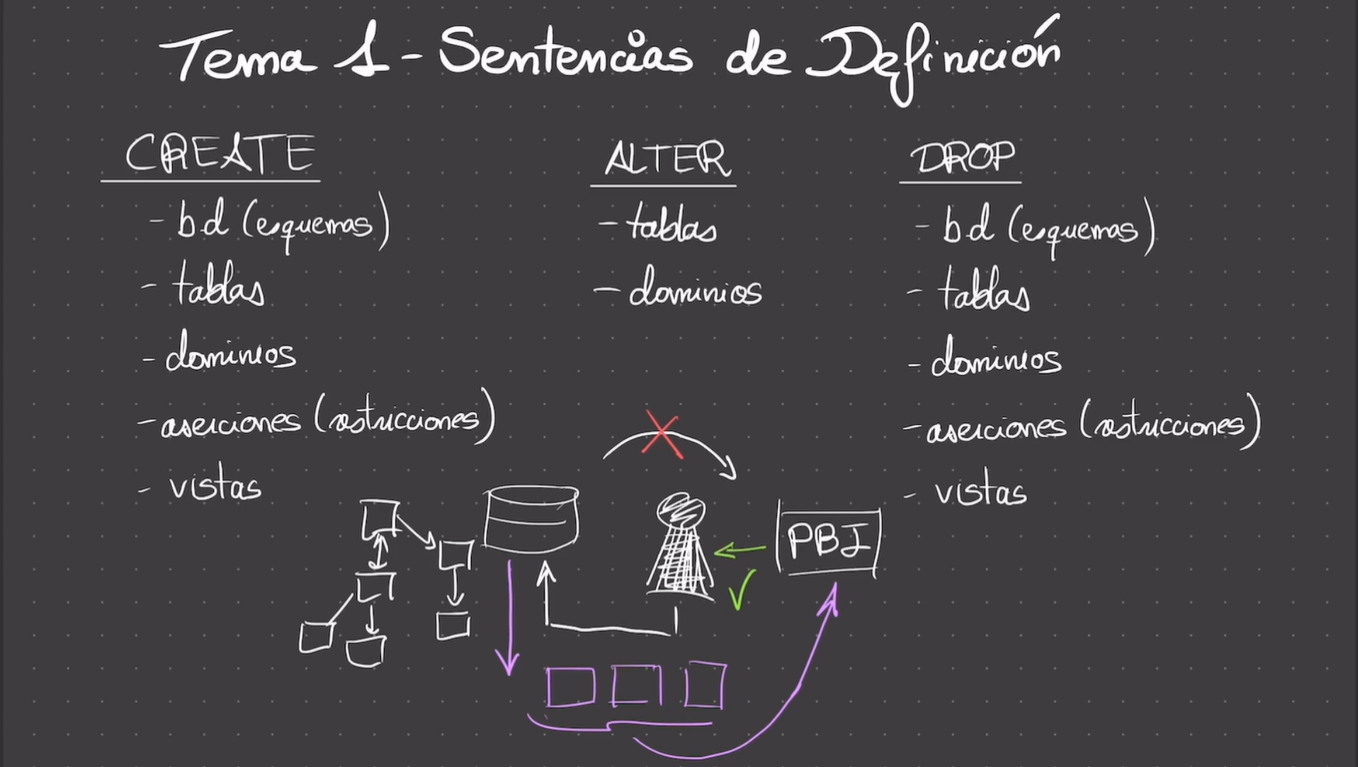 Tema 1 - Sentencias de Definición
CREATE
- bd (esquemas)
- tablas
- dominios
- aserciones (restricciones)
- vistas
ALTER
- tablas
- dominios
DROP
- bd (esquemas)
- tablas
- dominios
- aserciones (restricciones)
- vistas
PBI